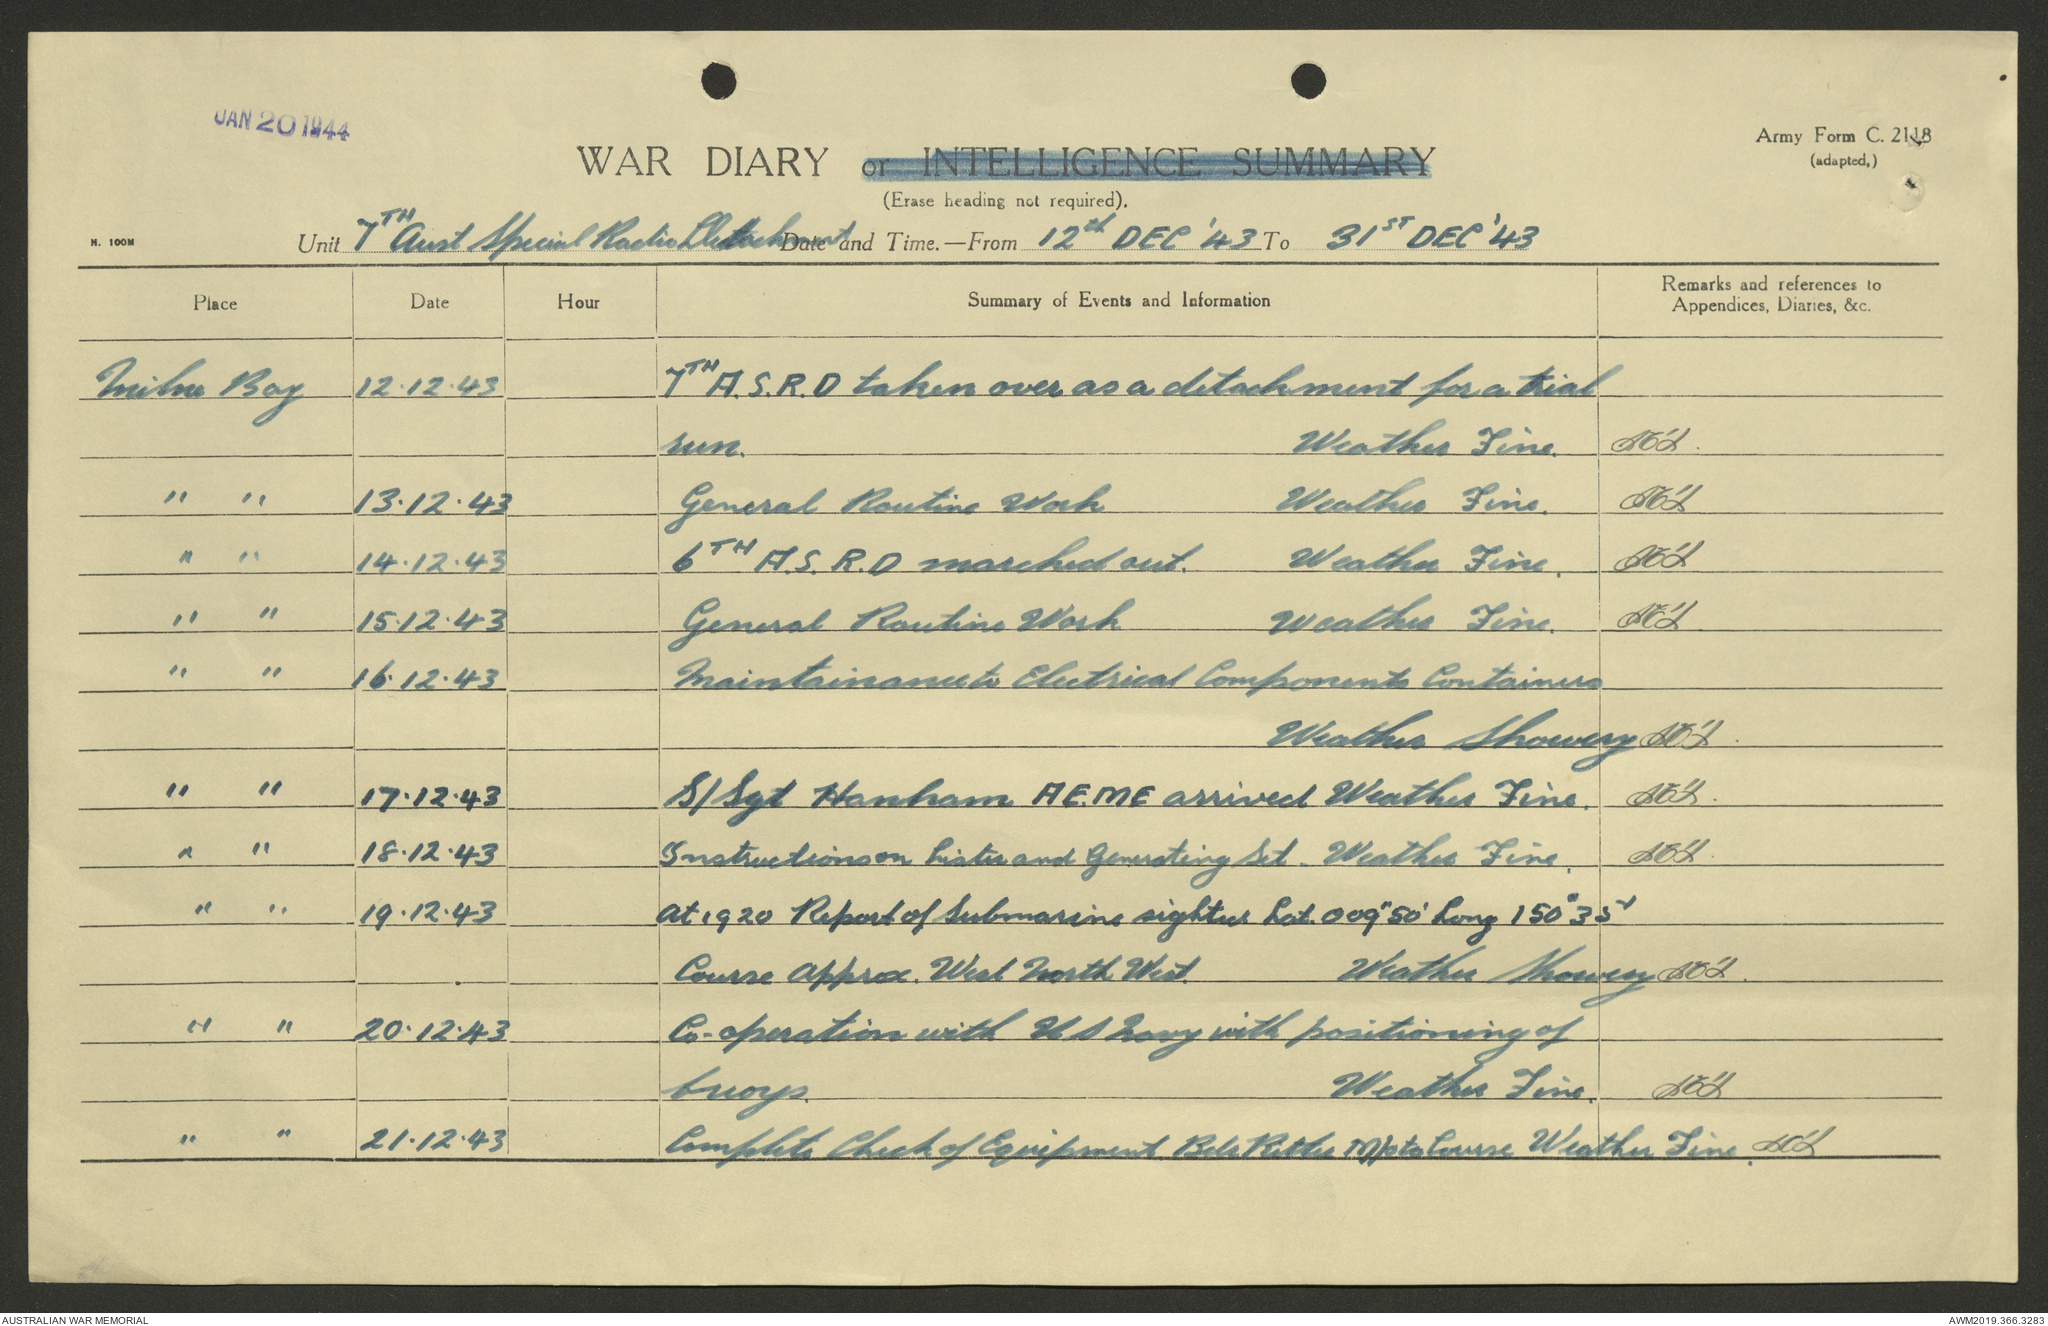 JAN 20 1944
Army Form C. 2118
(adapted,)
WAR DIARY or INTELLIGENCE SUMMARY
(Erase heading not required).
N. 100M
Unit 7TH Aust Special Radio Detachment Date and Time.—From 12th DEC '43 To 31ST DEC '43
Place Date Hour Summary of Events and Information Remarks and references to
Appendices, Diaries, &c.
Milne Bay 12.12.43 7TH A.S.R.D taken over as a detachment for a trial
run. Weather Fine.
" " 13.12.43 General Routine Work Weather Fine.
" " 14.12.43 6TH A.S.R.D marched out. Weather Fine.
" " 15.12.43 General Routine Work Weather Fine.
" " 16.12.43 Maintainance to Electrical Components Containers
Weather Showery
" " 17.12.43 S/Sgt Hanham A.E.M.E arrived Weather Fine.
" " 18.12.43 Instructions on Lister and Generating Set. Weather Fine.
" " 19.12.43 At 1920 Report of Submarine sighted Lat. 009°50' Long 150°35'
Course Approx. West North West. Weather Showery
" " 20.12.43 Co-operation with U S Navy with positioning of
buoys. Weather Fine.
" " 21.12.43 Complete Check of Equipment to Course Weather Fine.
AUSTRALIAN WAR MEMORIAL
AWM2019.366.3283